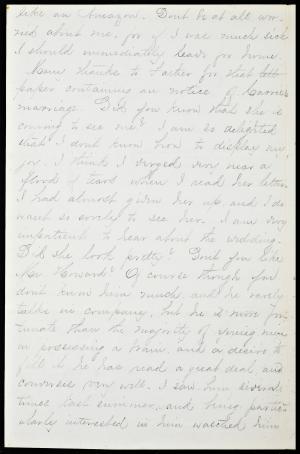 like an Amazon. Don't be at all wor-
ried about me, for if I was much sick
I should immediately leave for home.
Many thanks to Father for that
paper containing an notice of Carrie's
marriage. Did you know that she is
coming to see me? I am so delighted
that I don't know how to display my
joy. I think I verged very near a
flood of tears when I read her letter.
I had almost given her up and I do
want so sorely to see her. I am very
impatient to hear about the wedding.
Did she look pretty? Don't you like
Mr. Howard? Of course though you
don't know him much, and he rarely
talks in company, but he is more for-
tunate than the majority of young men
in possessing a brain, and a desire to
fill it. he has read a great deal, and
converses very well. I saw him several
times last summer, and being partic-
ularly interested in him watched him